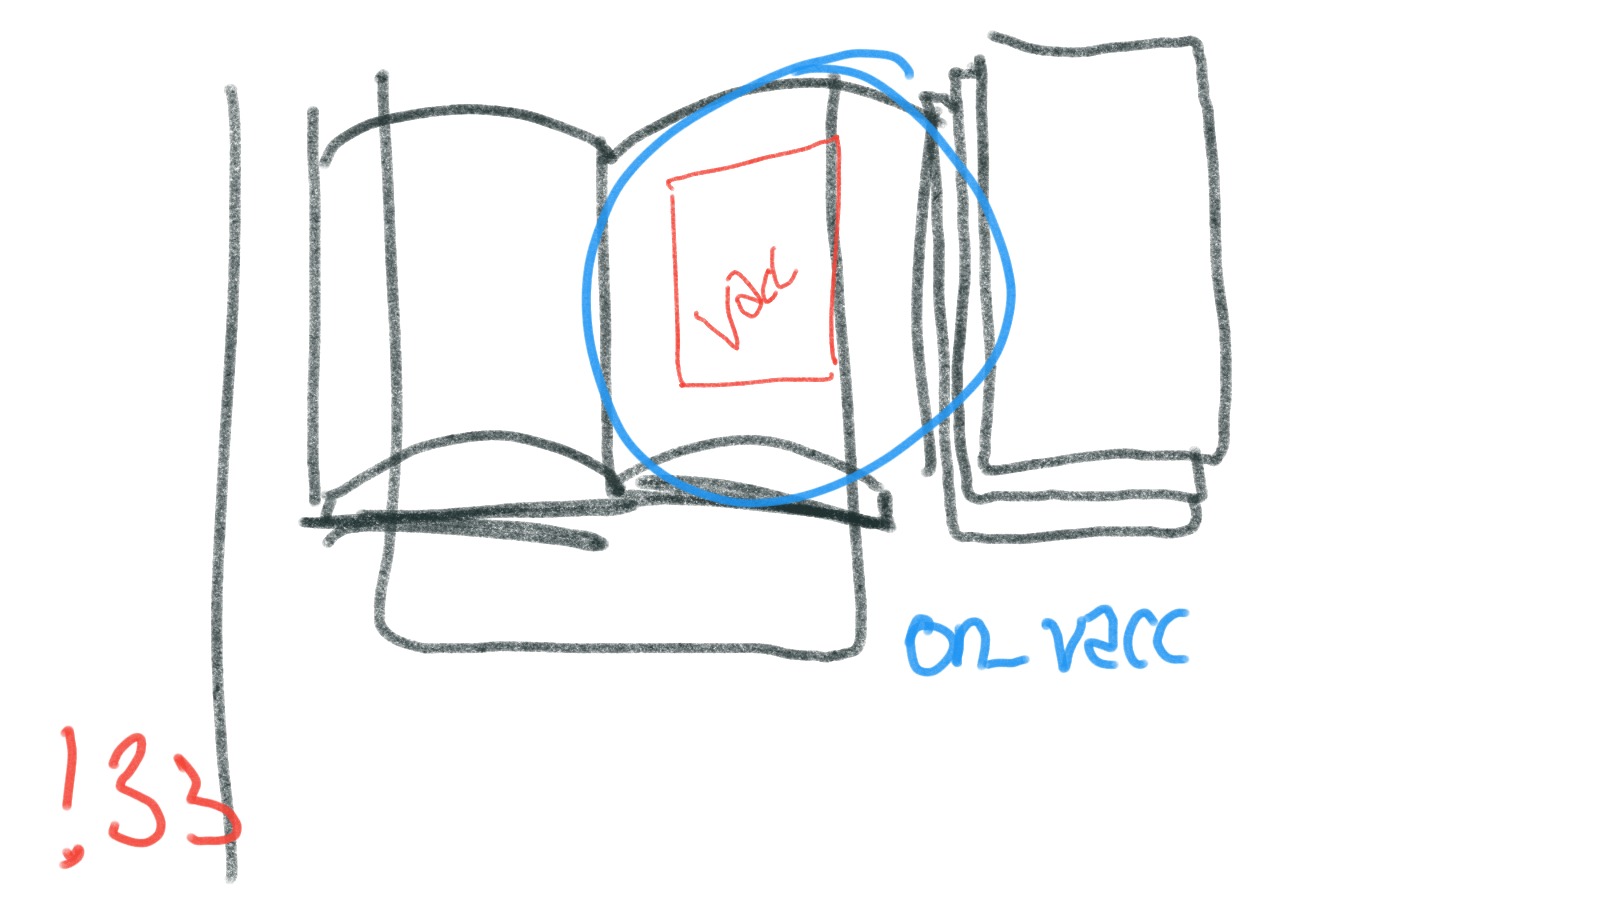 vacc
on vacc
!33